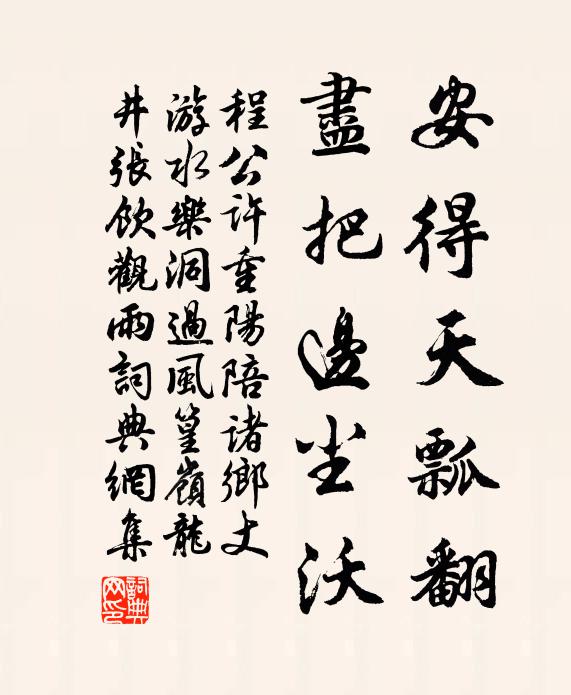 安得天瓢翻
盡把邊尘沃
程公許重陽陪諸鄉丈
游水樂洞過風篁嶺龍
井張飲觀雨詞典網集
詞典
网印